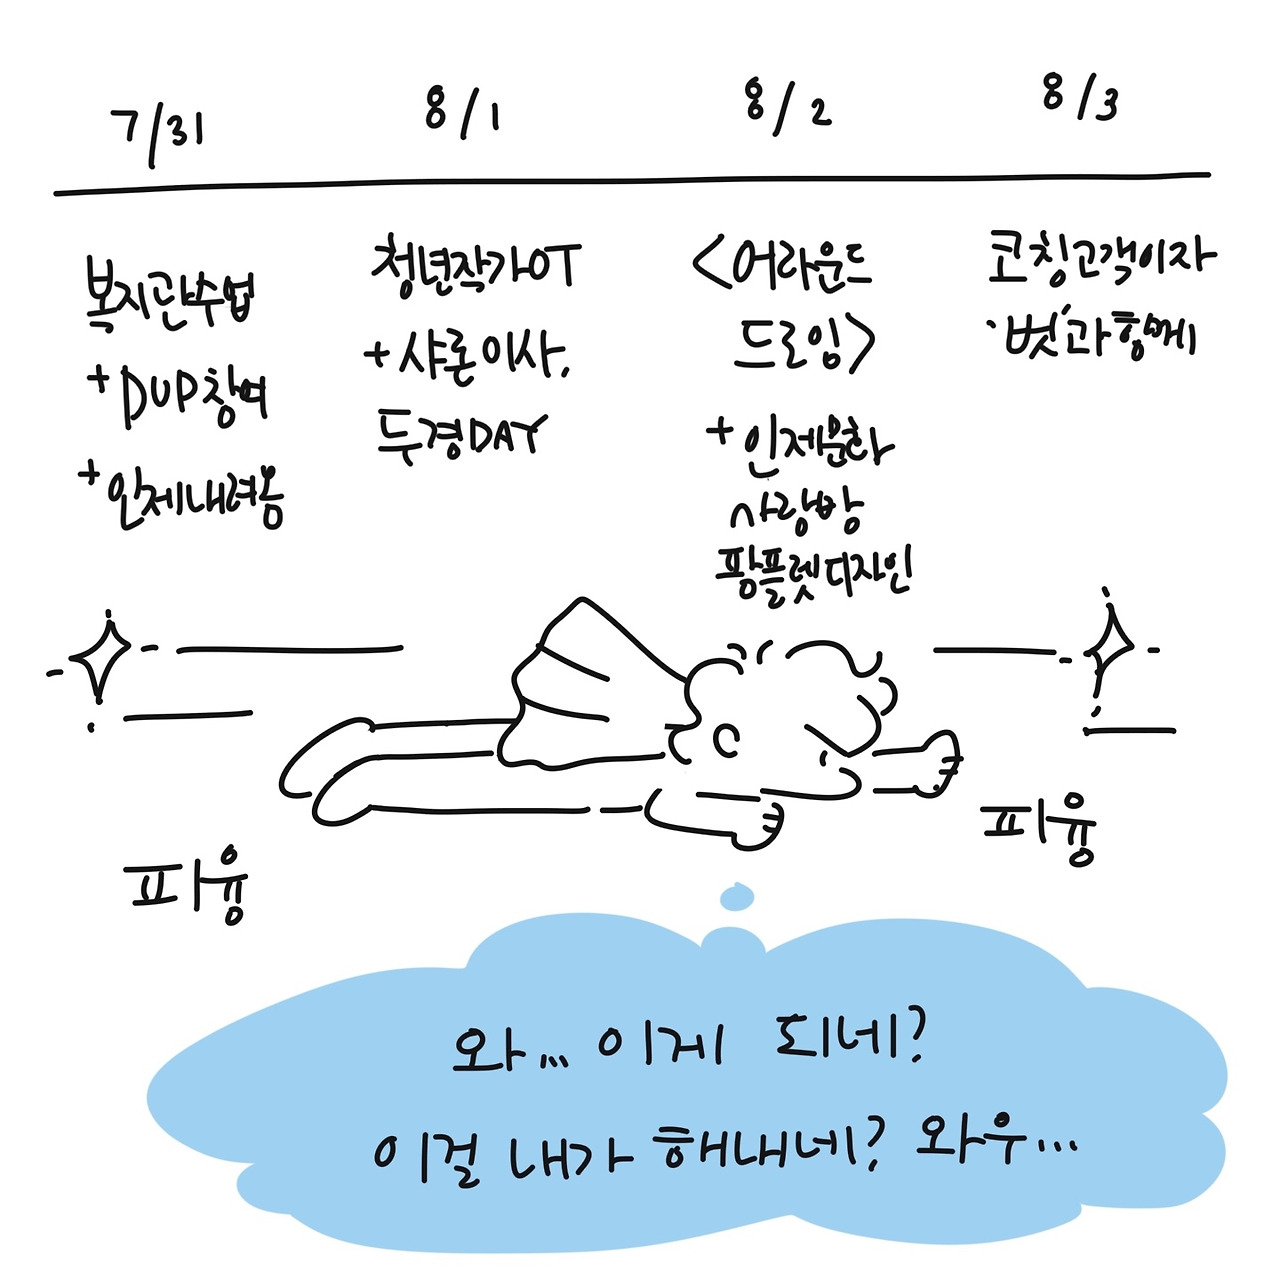 7/31
복지관수업
+ DUP참여
+ 인제내려옴
8/1
청년작가OT
+ 샤론이사,
두경DAY
8/2
<어라운드
드로잉>
+ 인제문화
사랑방
팜플렛디자인
8/3
코칭고객이자
'벗'과함께
피융
피융
와... 이게 되네?
이걸 내가 해내네? 와우...